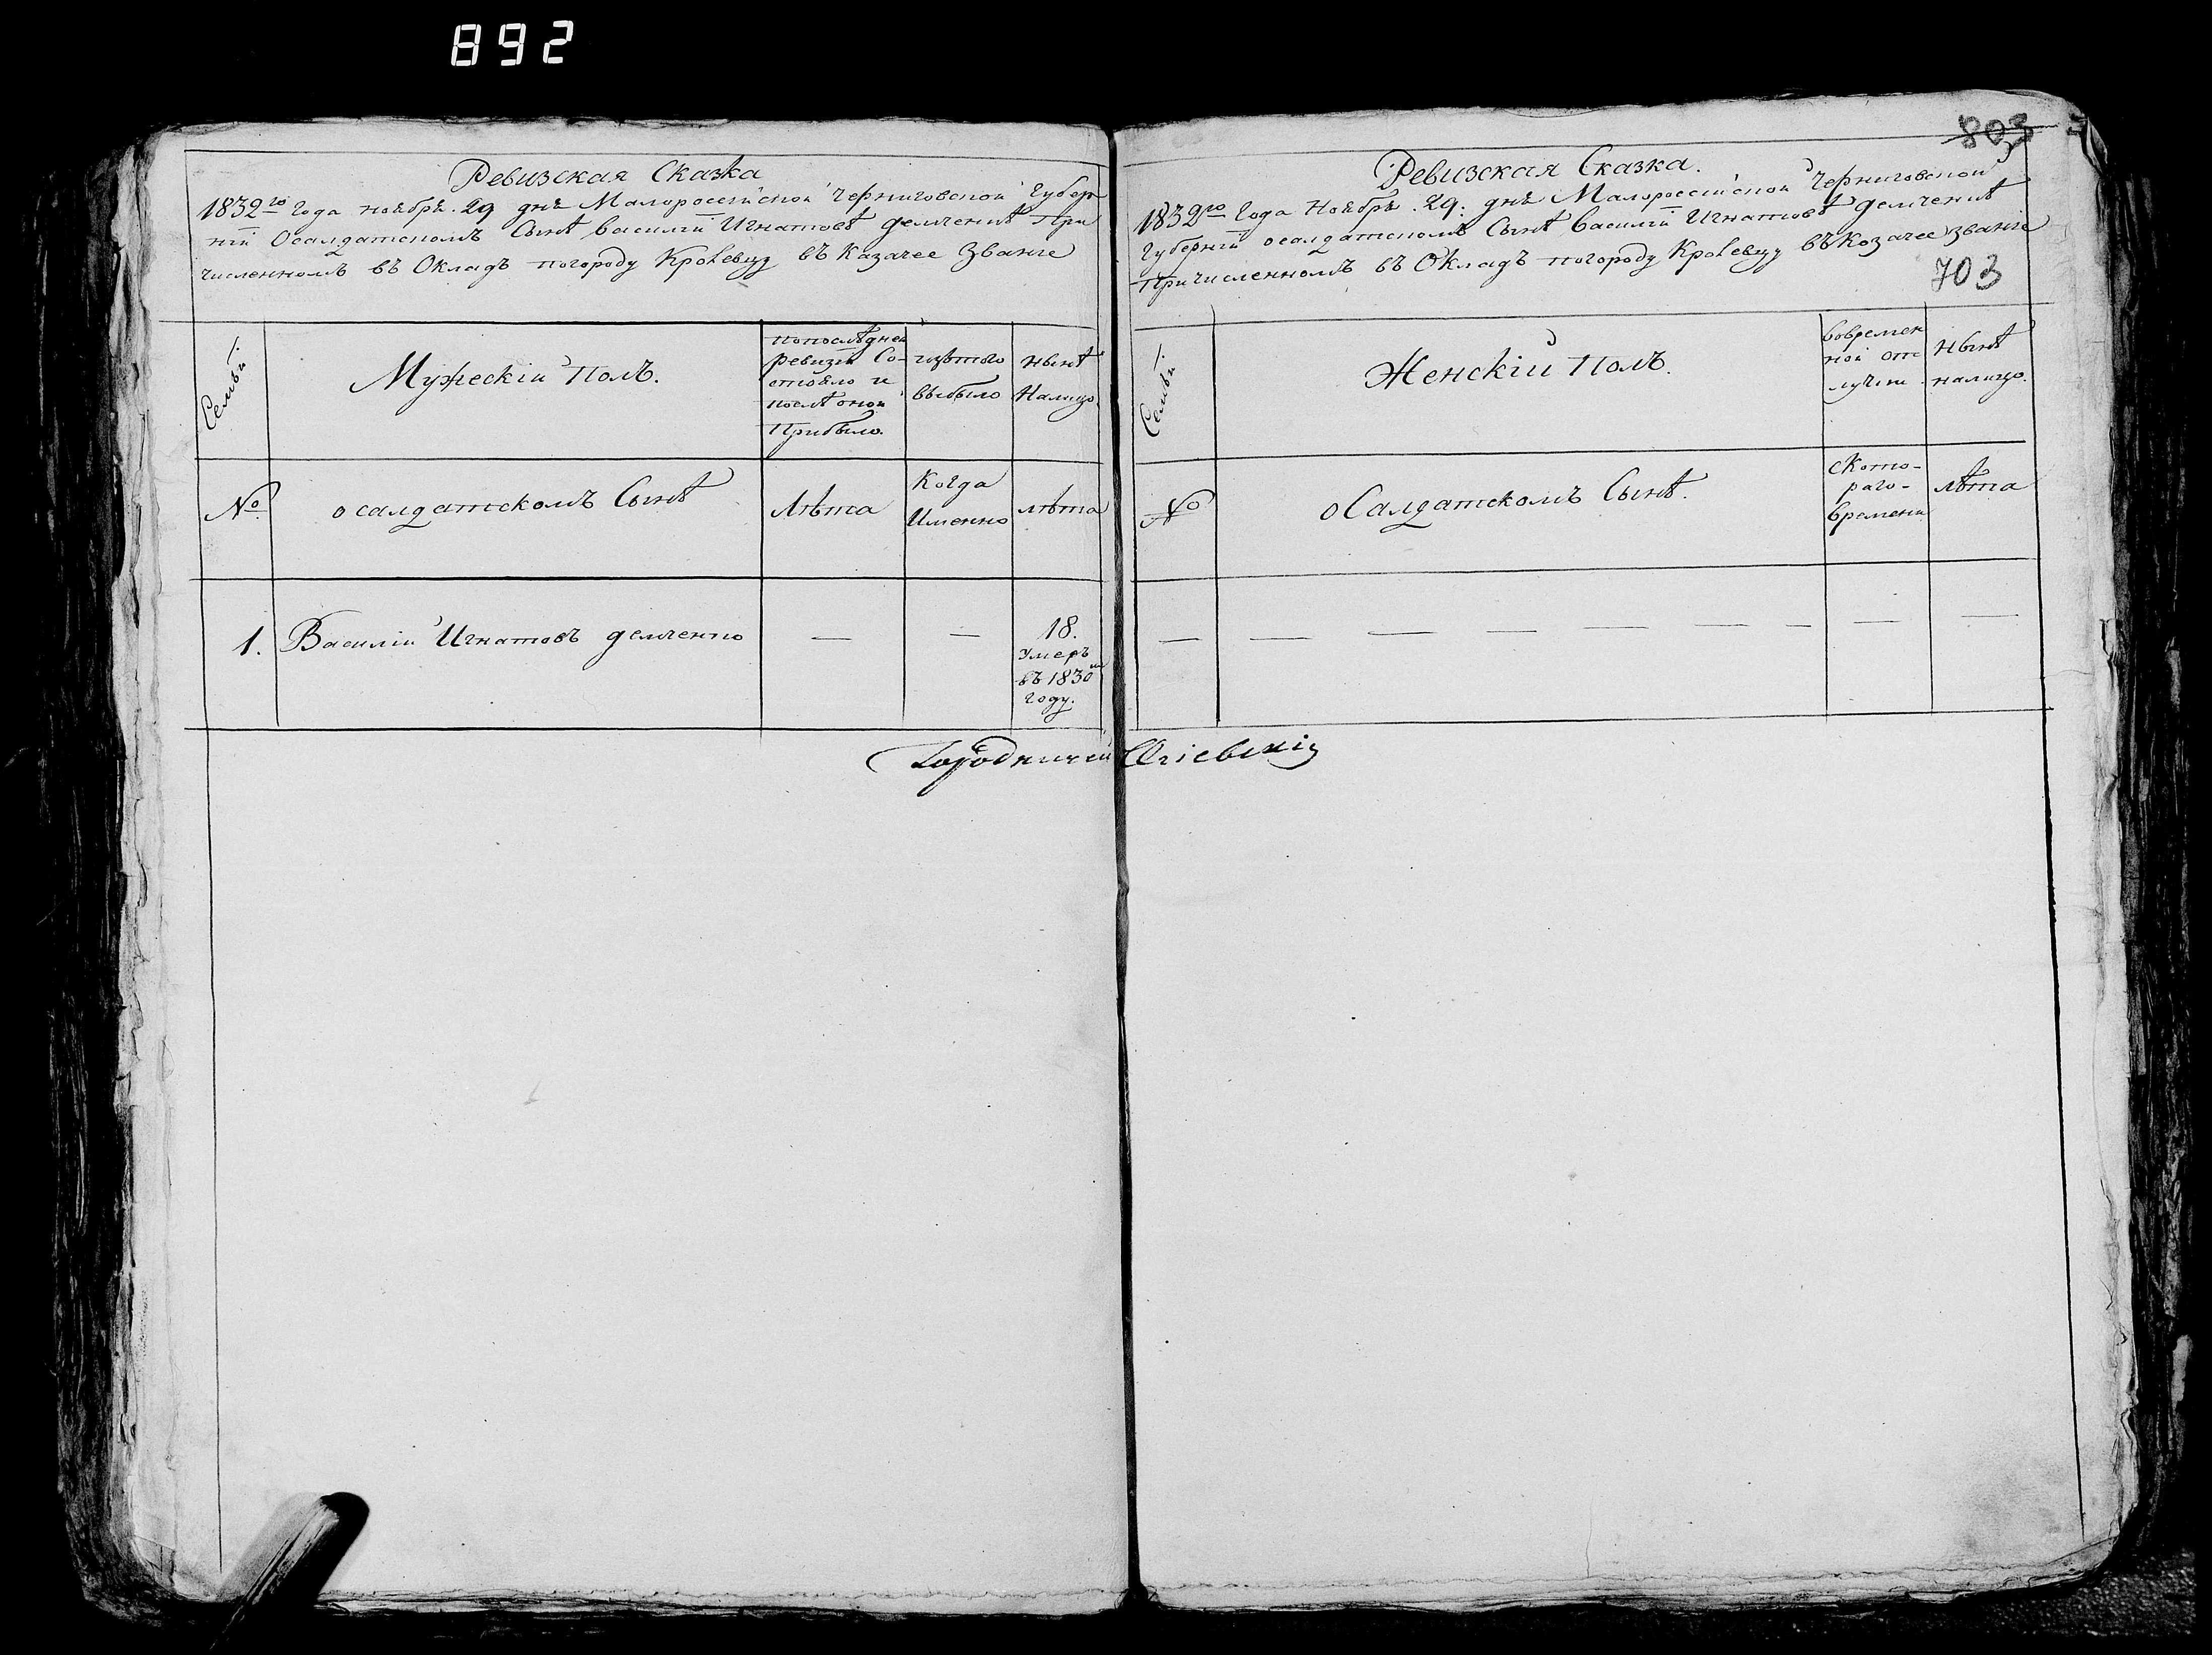 892
Ревизская Сказка
1832го Года ноября 29 дня Малороссійской Черниговской Губер
ніи Осалдатскомъ Сынѣ Василіи Игнатовѣ демченкѣ При
численномъ въ Окладъ погороду Кролевцу въ Казачее Званіе
Семьи.
Мужескій Полъ.
попослѣдней
ревизіи Со-
стояло и
послѣ оной
Прибыло.
изътого
выбыло
нынѣ
Налицо.
№
о салдатскомъ Сынѣ
Лѣта
Когда
Именно
лѣта
1.
Василій Игнатовъ демченко
—
—
18.
Умеръ
въ 1830м
Году.
Городничій
803
Ревизская Сказка.
1832го Года Ноября 29: дня Малороссійской Черниговской
Губерніи осалдатскомъ Сынѣ Василіи Игнатовѣ демченкѣ
Причисленномъ въ Окладъ погороду Кролевцу въ Козачее званіе
703
Семьи.
Женскій Полъ.
вовремен
ной от
лучки
Нынѣ
налицо.
№
о Салдатскомъ Сынѣ.
ското-
раго-
времени
лѣта
— — — — — — — — —